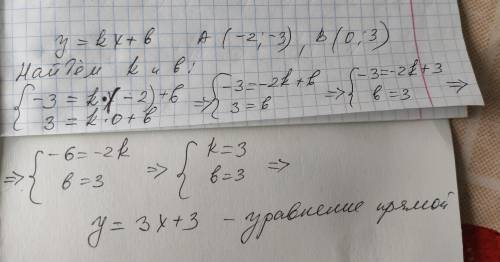 y = kx + b A (-2; -3), B (0; 3)
Найдём k и b:
{ -3 = k·(-2)+b => { -3 = -2k+b => { -3 = -2k+3 =>
3 = k·0 + b 3 = b b = 3
=> { -6 = -2k => { k = 3 =>
b = 3 b = 3
y = 3x+3 - уравнение прямой